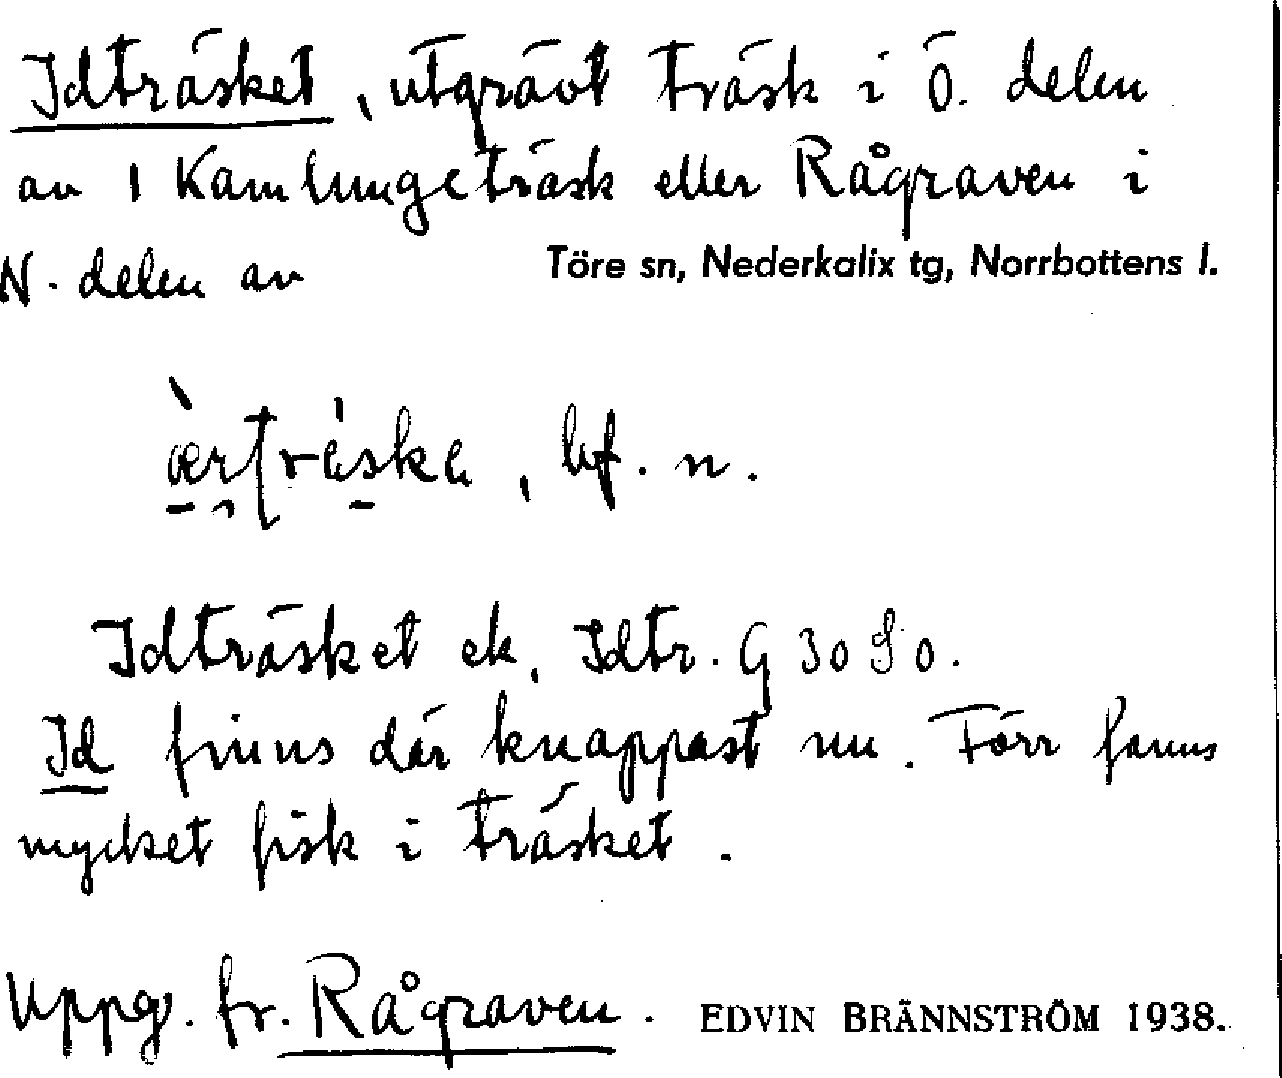 Idträsket, utgrävt träsk i Ö. delen
av 1 Kamlungeträsk eller Rågraven i
N. delen av Töre sn, Nederkalix tg, Norrbottens l.
, bf. n.
Idträsket ek, Idtr. G 30 So.
Id finns där knappast nu. Förr fanns
mycket fisk i träsket.
Uppg. fr. Rågraven. EDVIN BRÄNNSTRÖM 1938.